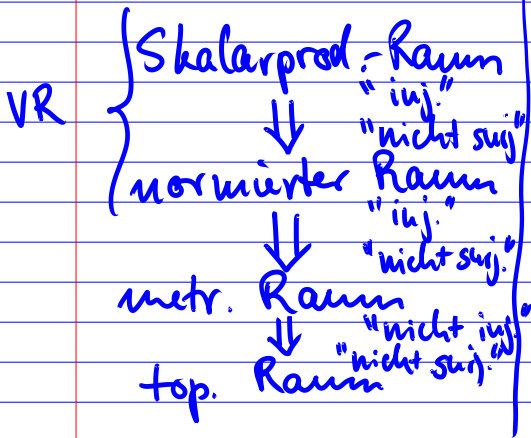 Skalarprod.-Raum
"inj."
VR
⇓
"nicht surj"
normierter Raum
"inj."
⇓
"nicht surj."
metr. Raum
"nicht inj"
⇓
"nicht surj."
top. Raum